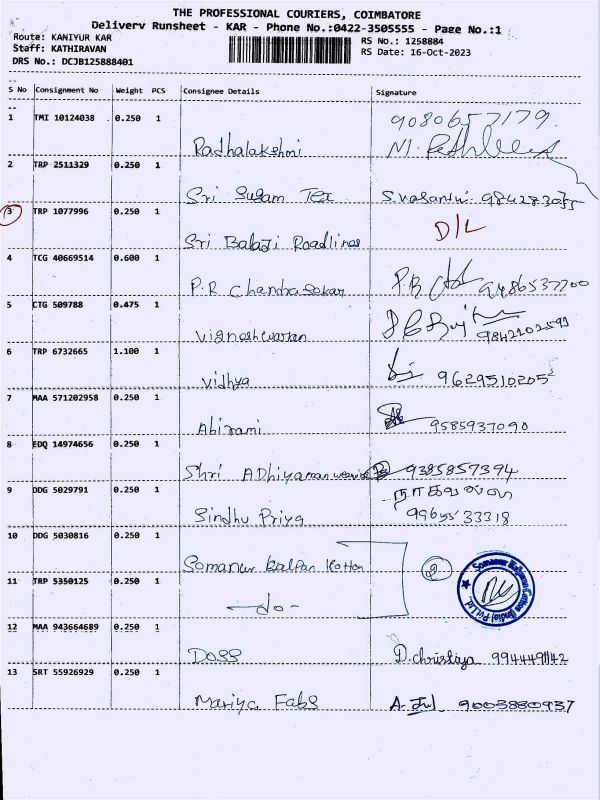 THE PROFESSIONAL COURIERS, COIMBATORE
Delivery Runsheet - KAR - Phone No.:0422-3505555 - Page No.:1
Route: KANIYUR KAR RS No.: 1258884
Staff: KATHIRAVAN RS Date: 16-Oct-2023
DRS No.: DCJB125888401
S No Consignment No Weight PCS Consignee Details Signature
1 TMI 10124038 0.250 1 9080657179
Radhalakshmi
2 TRP 2511329 0.250 1
Sri Sugam Tex S.Vasanthi
3 TRP 1077996 0.250 1
Sri Balaji Roadlines D/L
4 TCG 40669514 0.600 1
P.R Chandrasekar 9486537700
5 CTG 509788 0.475 1
Vigneshwaran 9842102599
6 TRP 6732665 1.100 1
Vidhya 9629510205
7 MAA 571202958 0.250 1
Abirami 9585937090
8 EDQ 14974656 0.250 1
Shri ADhiyaman 9385857394
9 DDG 5029791 0.250 1
Sindhu Priya 9965533318
10 DDG 5030816 0.250 1
Somanur Kalpan Kotton 2
11 TRP 5350125 0.250 1
-do-
12 MAA 943664689 0.250 1
Doss D.christiya
13 SRT 55926929 0.250 1
Mariya Fabs 9003880937